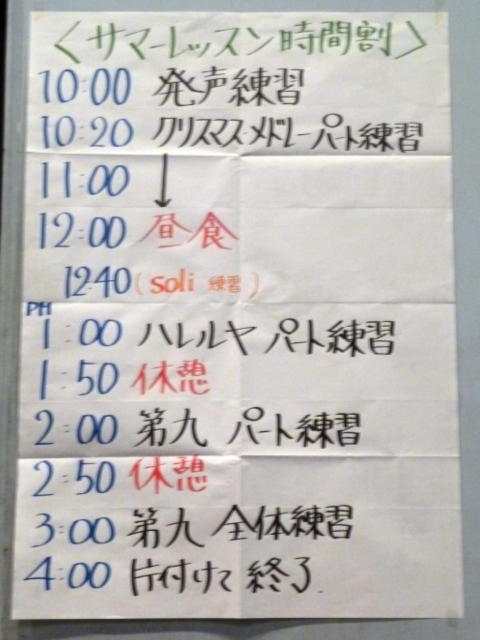 ＜サマーレッスン時間割＞
10:00 発声練習
10:20 クリスマス・メドレーパート練習
11:00 ↓
12:00 昼食
12:40 (soli 練習)
PM
1:00 ハレルヤ パート練習
1:50 休憩
2:00 第九 パート練習
2:50 休憩
3:00 第九 全体練習
4:00 片付けて 終了.